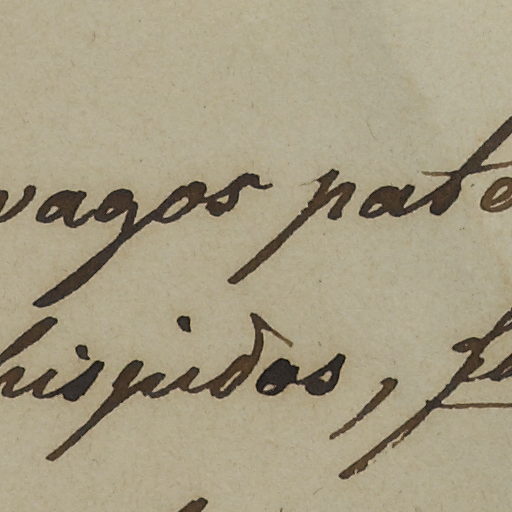 vagos pate
hispidos, fe